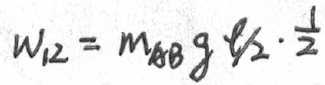 W₁₂ = m_AB g ℓ/2 · 1/2